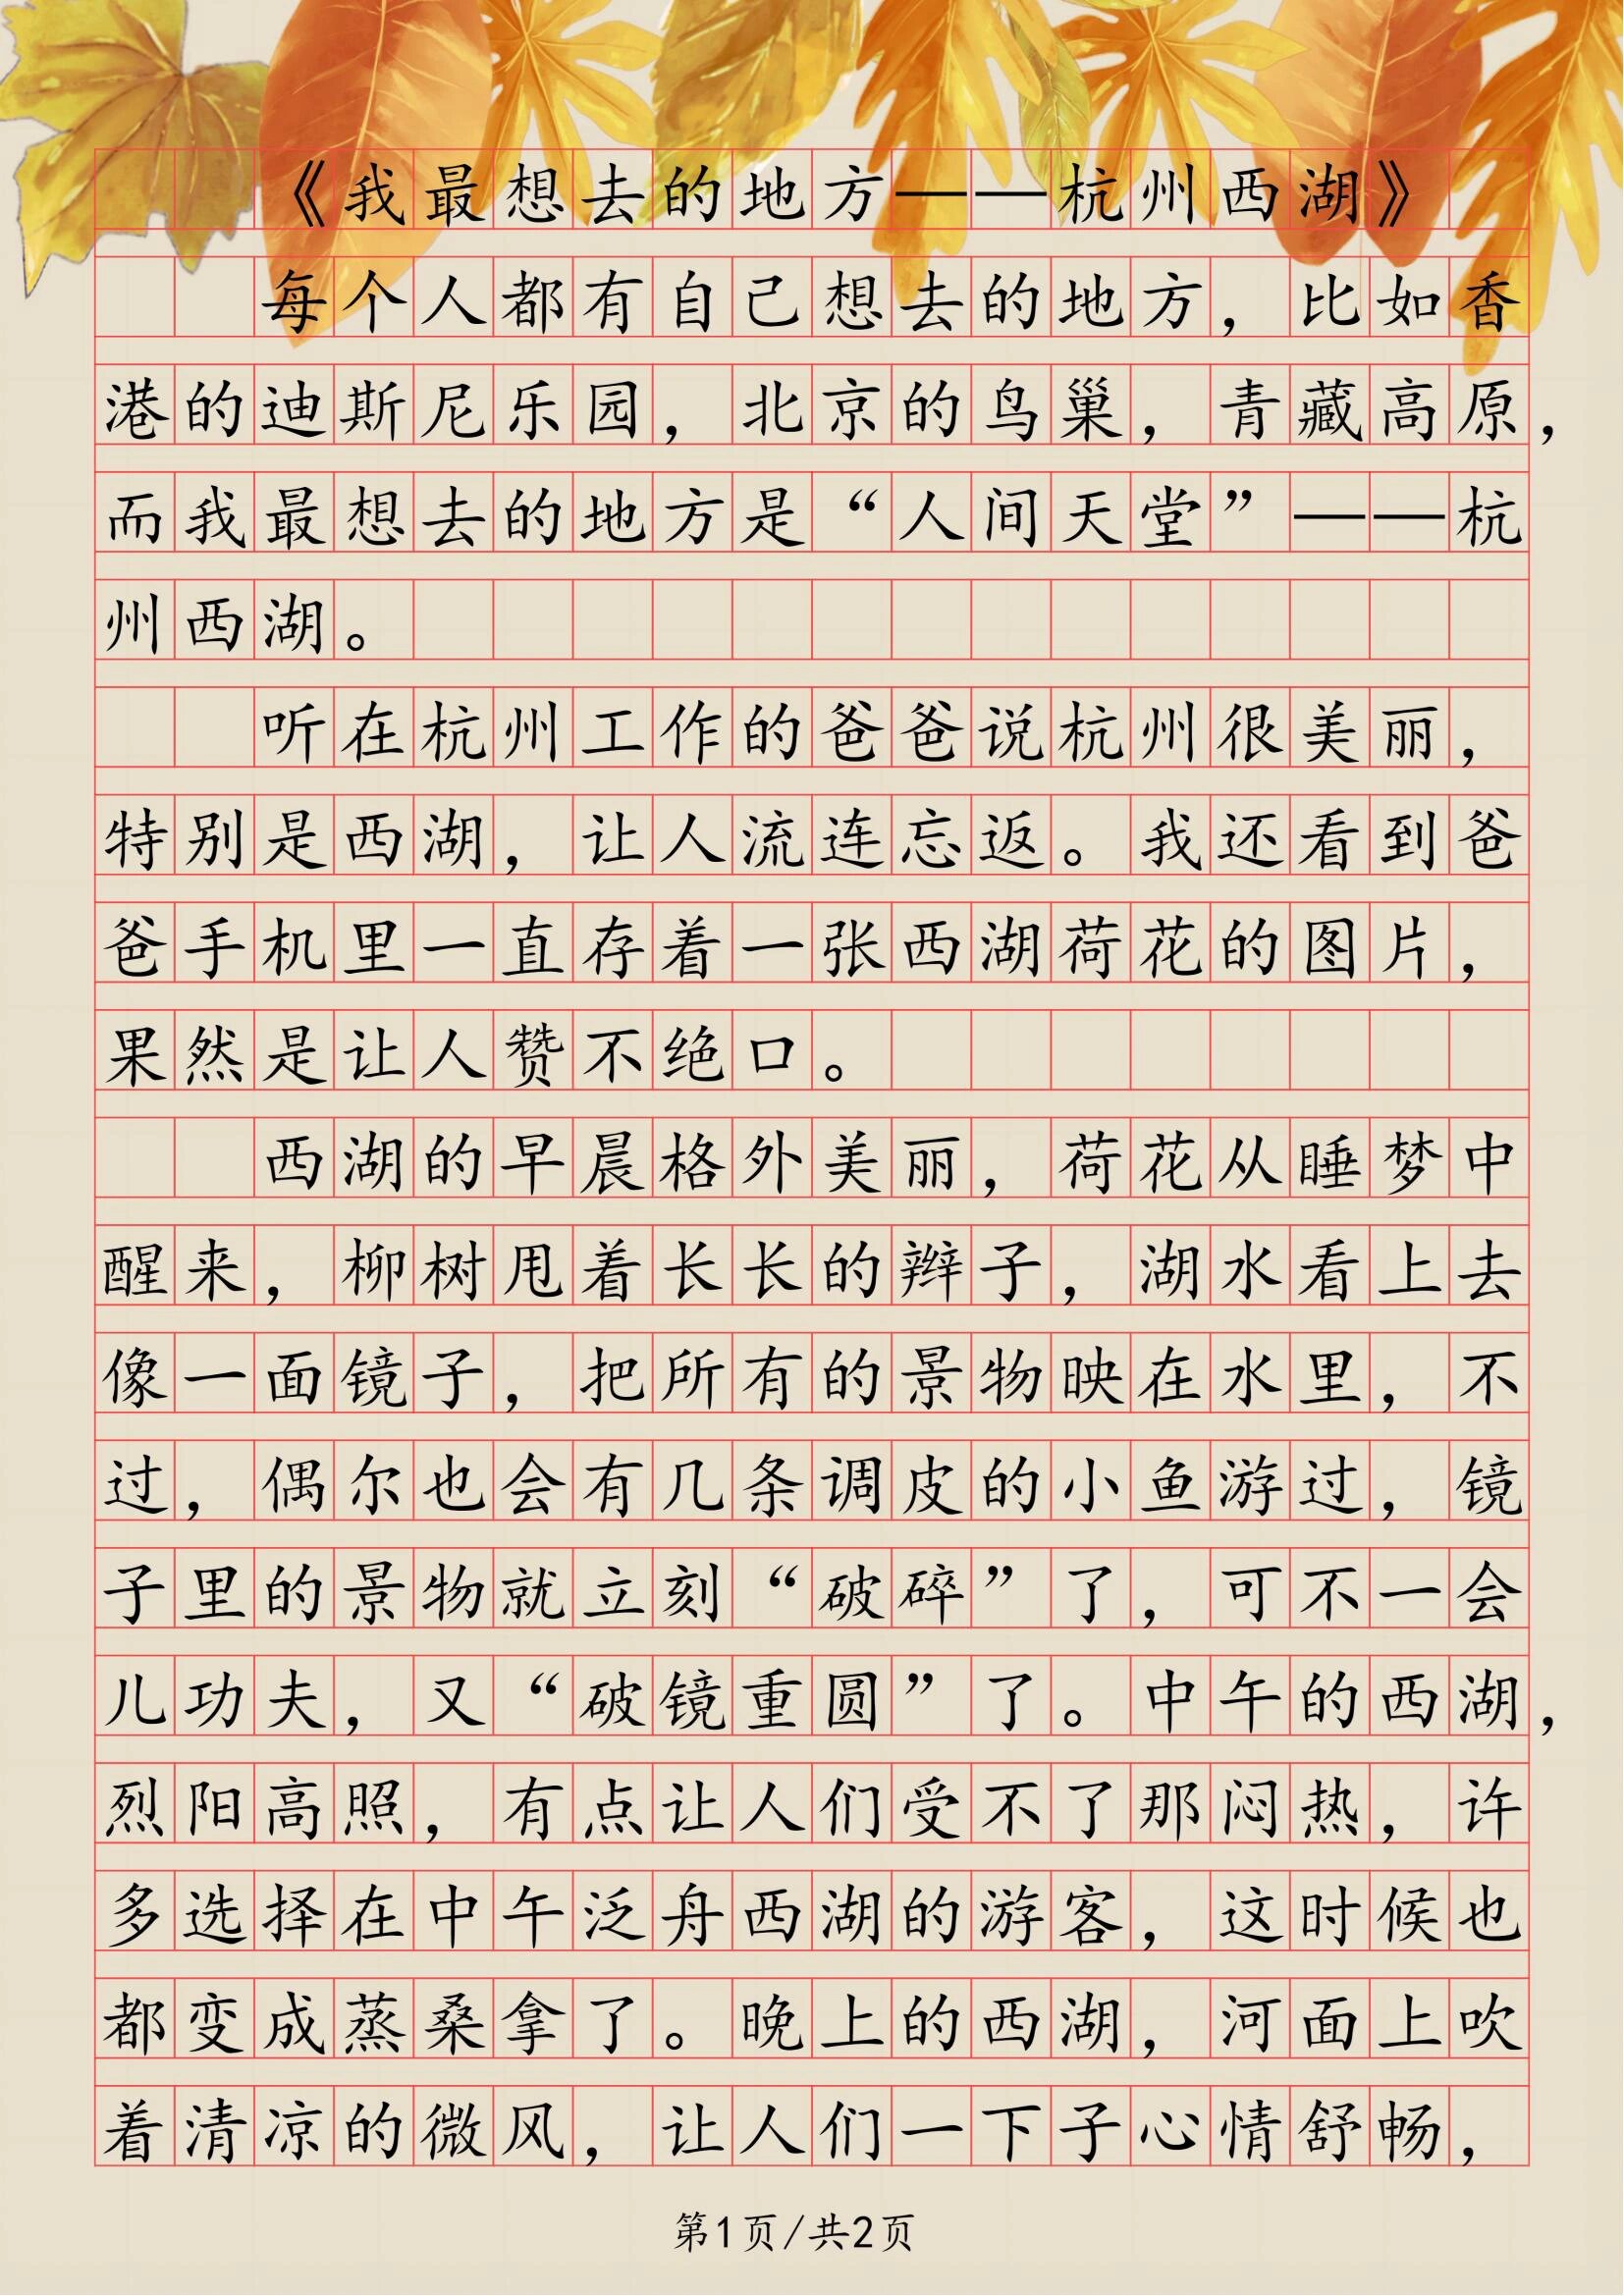 《我最想去的地方——杭州西湖》
每个人都有自己想去的地方，比如香
港的迪斯尼乐园，北京的鸟巢，青藏高原，
而我最想去的地方是“人间天堂”——杭
州西湖。
听在杭州工作的爸爸说杭州很美丽，
特别是西湖，让人流连忘返。我还看到爸
爸手机里一直存着一张西湖荷花的图片，
果然是让人赞不绝口。
西湖的早晨格外美丽，荷花从睡梦中
醒来，柳树甩着长长的辫子，湖水看上去
像一面镜子，把所有的景物映在水里，不
过，偶尔也会有几条调皮的小鱼游过，镜
子里的景物就立刻“破碎”了，可不一会
儿功夫，又“破镜重圆”了。中午的西湖，
烈阳高照，有点让人们受不了那闷热，许
多选择在中午泛舟西湖的游客，这时候也
都变成蒸桑拿了。晚上的西湖，河面上吹
着清凉的微风，让人们一下子心情舒畅，
第1页/共2页